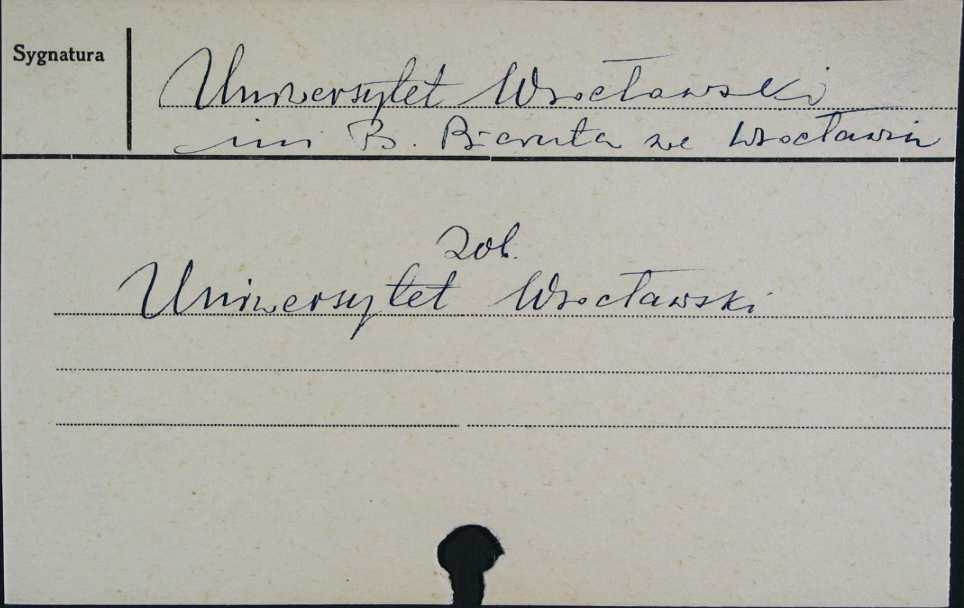 Sygnatura
Uniwersytet Wrocławski
im B. Bieruta we Wrocławiu
Zob.
Uniwersytet Wrocławski